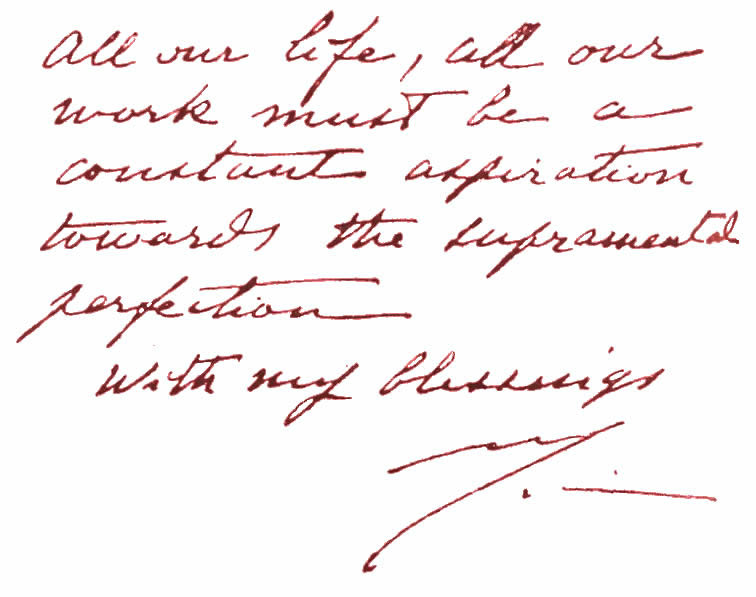 All our life, all our
work must be a
constant aspiration
towards the supramental
perfection
With my blessings